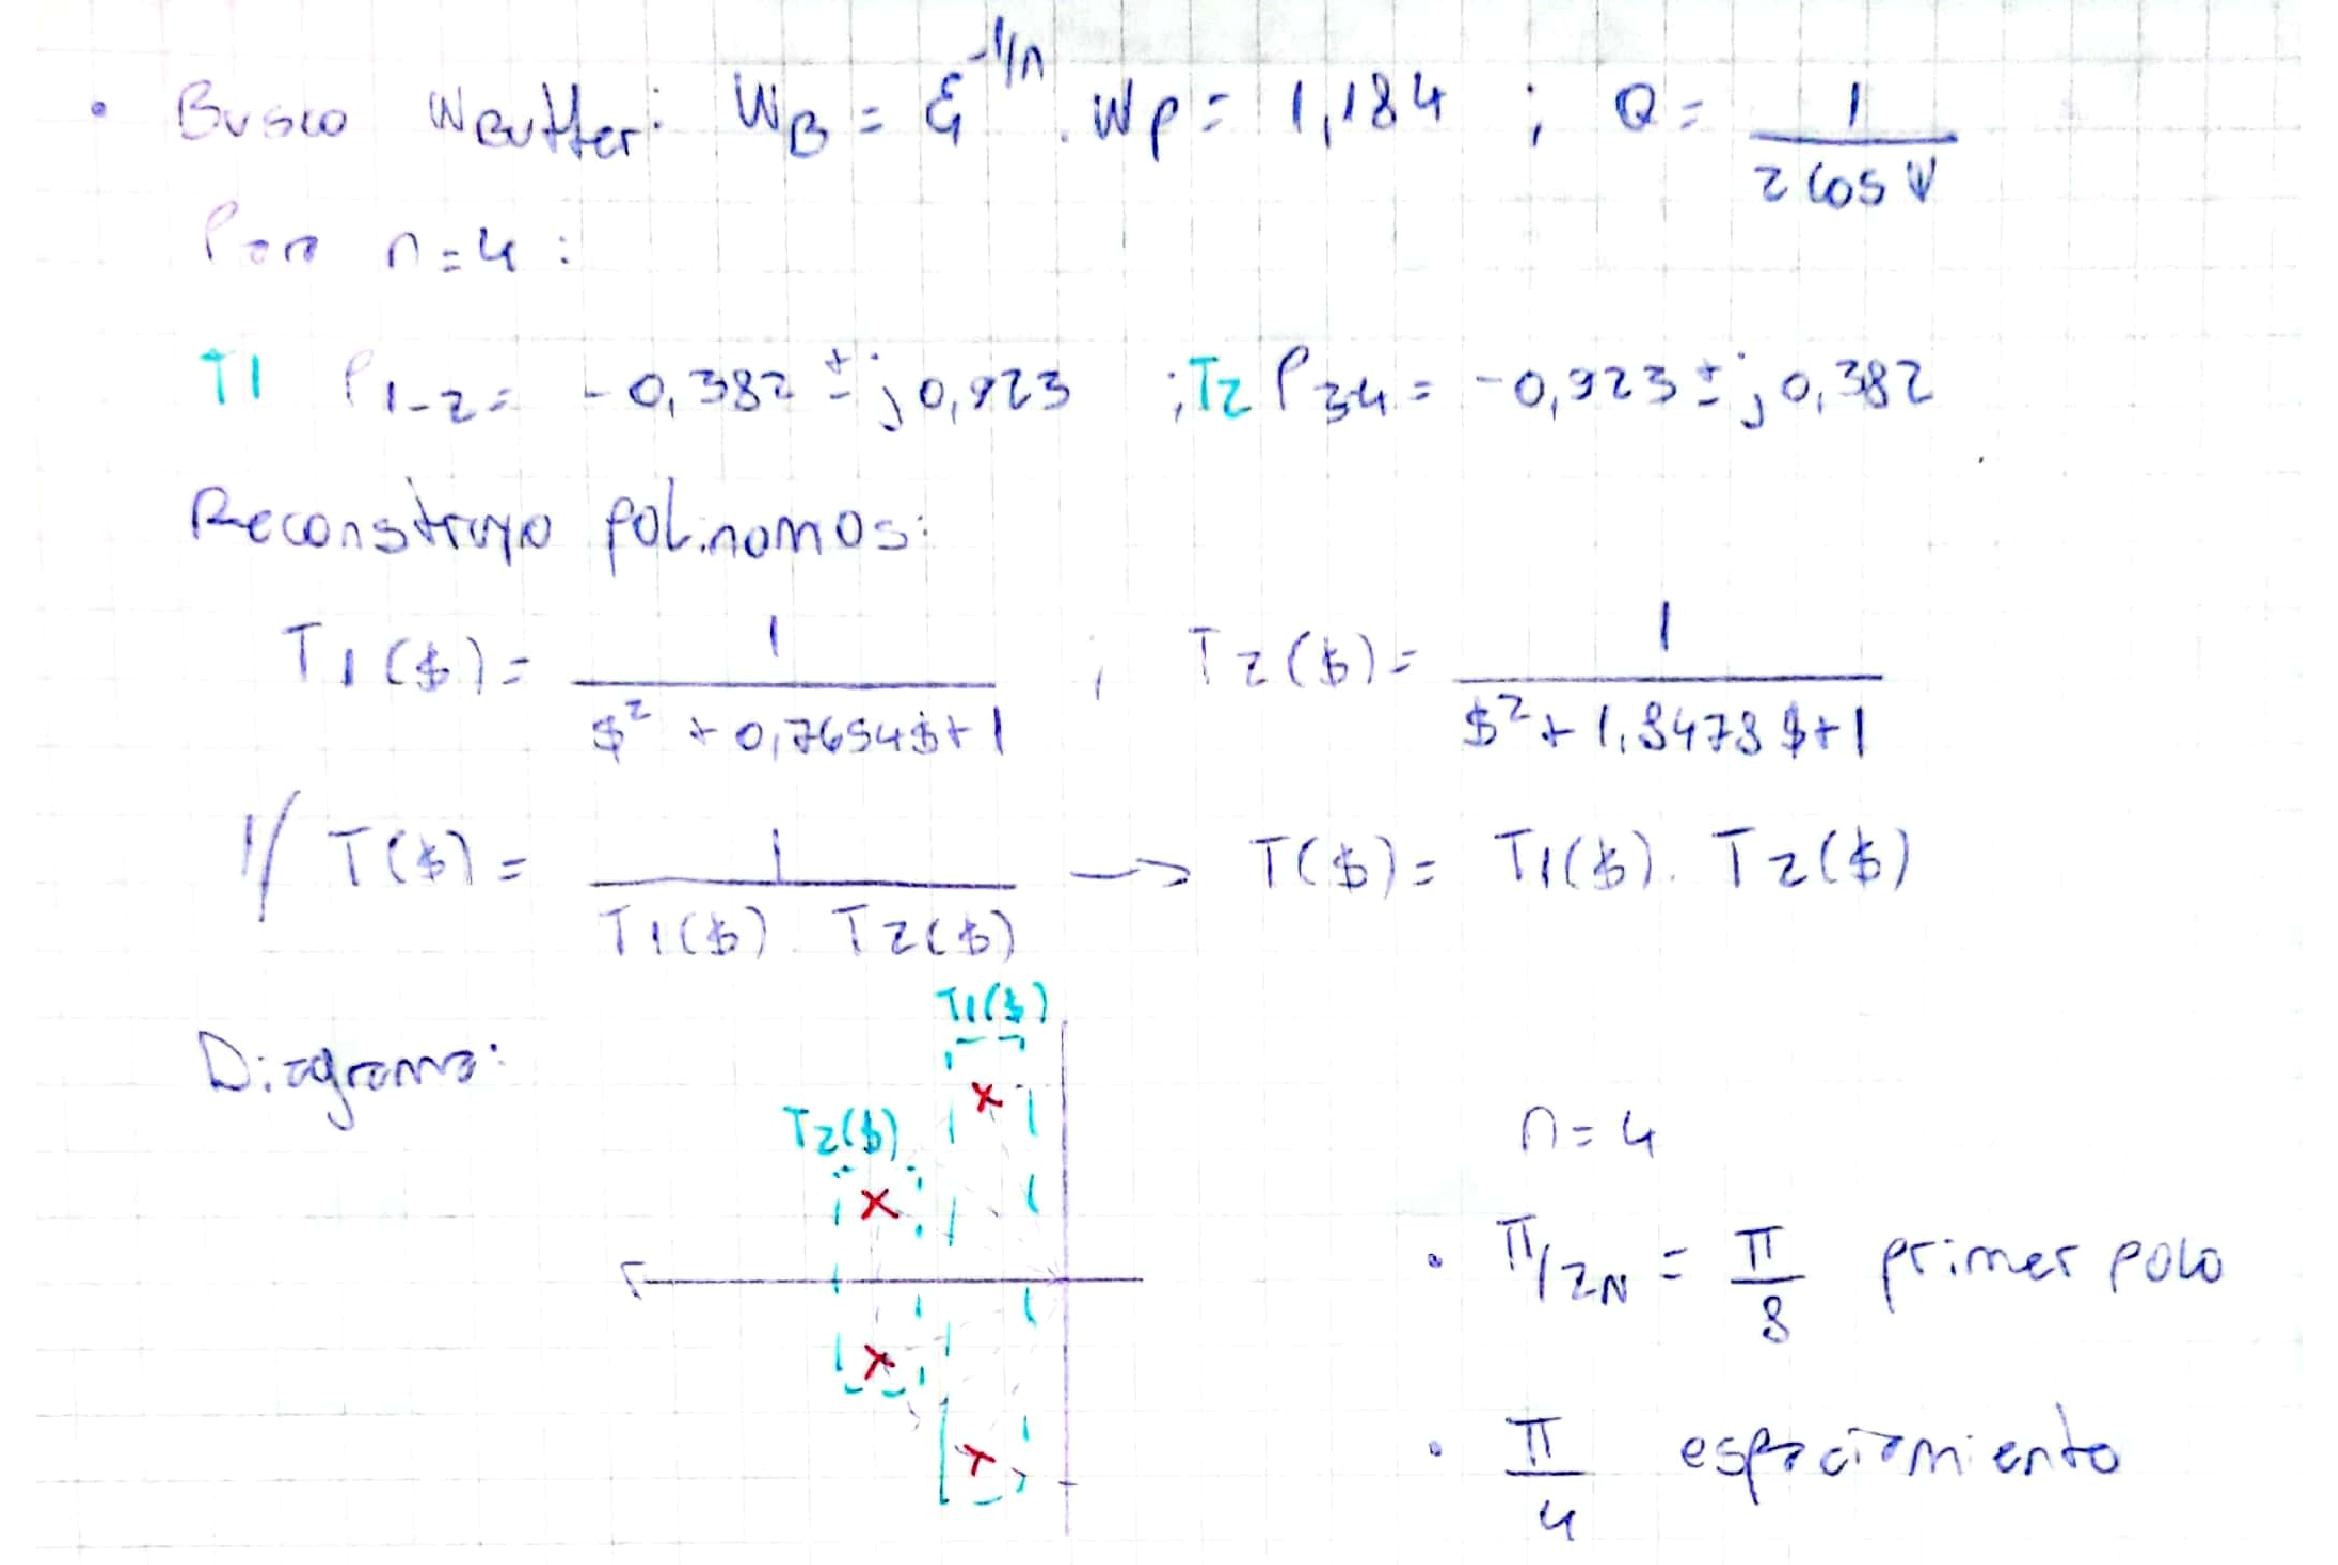 • Busco WButter: WB = ε^-1/n . Wp = 1,184 ; Q = 1/(2 cos Ψ)
Para n=4:
T1 P1-2 = -0,382 ± j0,923 ; T2 P34 = -0,923 ± j0,382
Reconstruyo polinomos:
T1($) = 1/($² + 0,7654$ + 1) ; T2($) = 1/($² + 1,8478$ + 1)
// T($) = 1/(T1($) . T2($)) → T($) = T1($) . T2($)
Diagrama:
T1($)
T2($)
n=4
• π/2N = π/8 primer polo
• π/4 espaciamiento